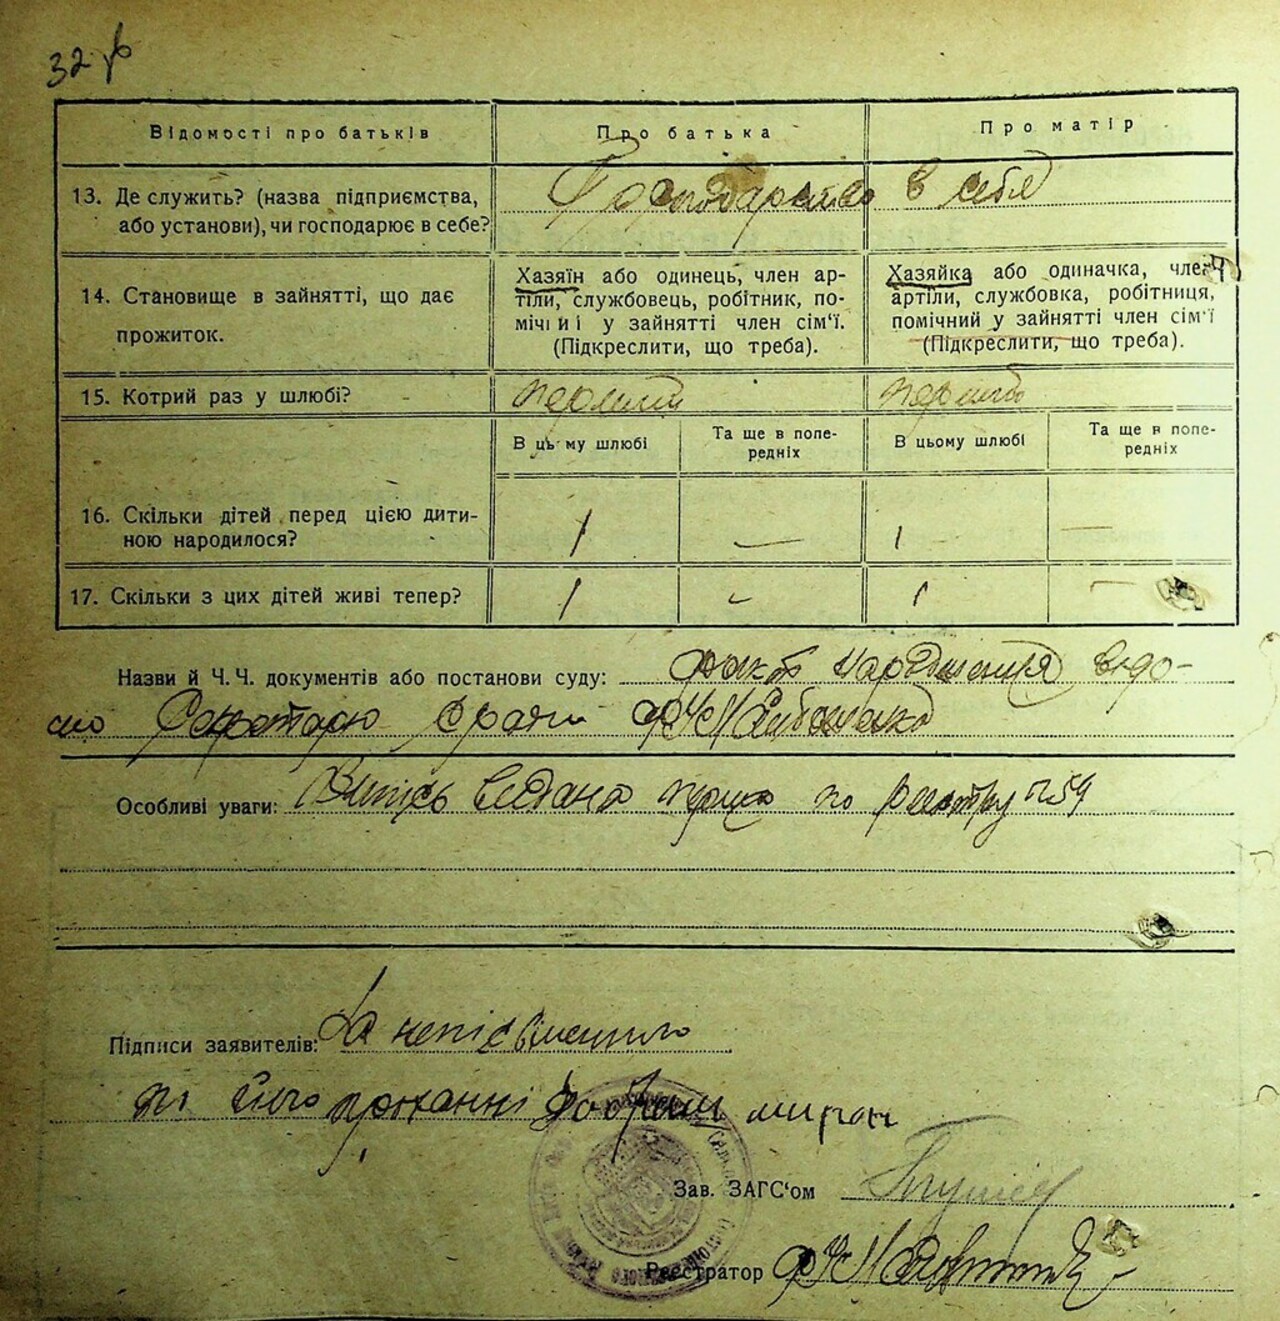 32
Відомості про батьків
Про батька
Про матір
13. Де служить? (назва підприємства, або установи), чи господарює в себе?
Господарство в себя
14. Становище в зайнятті, що дає прожиток.
Хазяїн або одинець, член ар-
тіли, службовець, робітник, по-
мічний у зайнятті член сім'ї.
(Підкреслити, що треба).
Хазяйка або одиначка, член
артіли, службовка, робітниця,
помічний у зайнятті член сім'ї
(Підкреслити, що треба).
15. Котрий раз у шлюбі?
первий
В цьому шлюбі
Та ще в попе-
редніх
В цьому шлюбі
Та ще в попе-
редніх
16. Скільки дітей перед цією дити-
ною народилося?
1 — 1 —
17. Скільки з цих дітей живі тепер?
1 — 1 —
Назви й Ч. Ч. документів або постанови суду: факт народження відо-
мо Секретарю
Особливі уваги: Витісь видана перша по реєстру №59
Підписи заявителів: За неписьменного
по його проханні мирон
Зав. ЗАГС'ом
Реєстратор